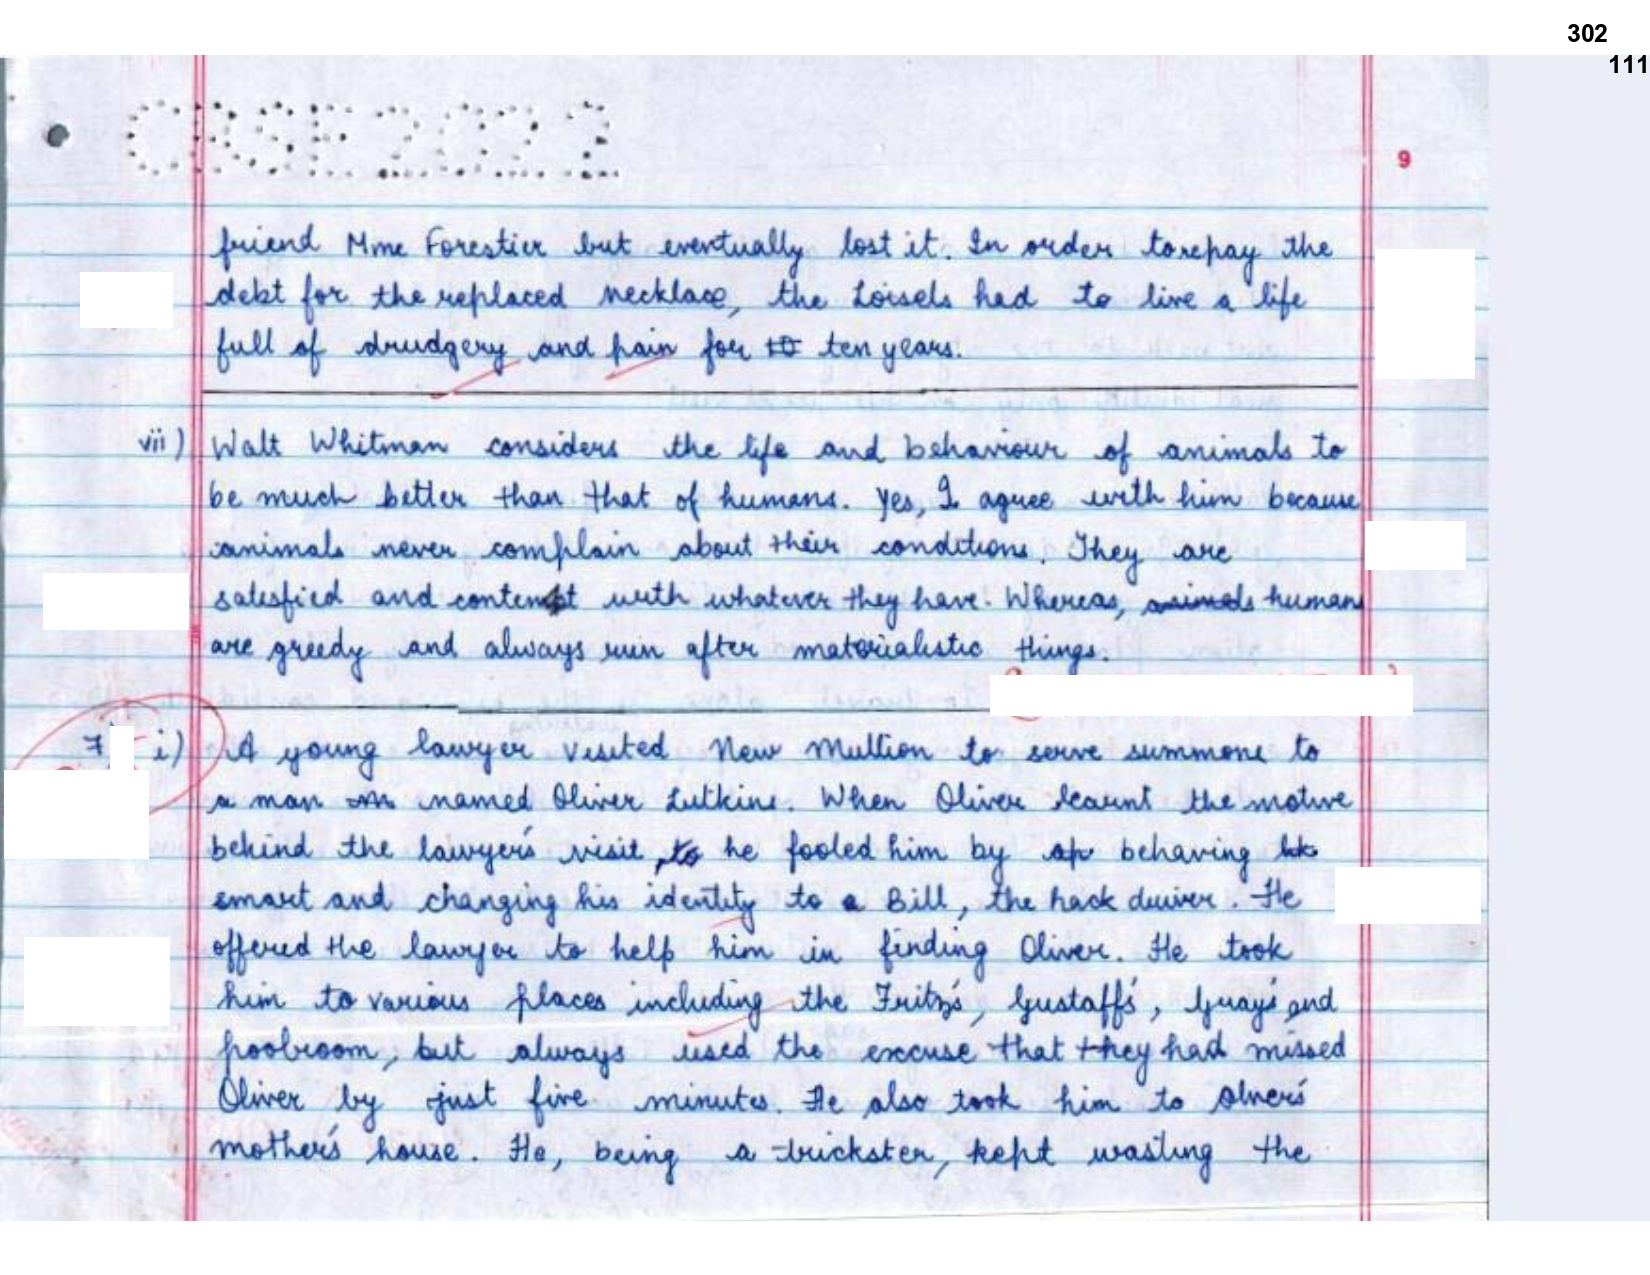 302
111
CBSE2022
9
friend Mme Forestier but eventually lost it. In order to repay the
debt for the replaced necklace, the Loisels had to live a life
full of drudgery and pain for 10 ten years.
vii) Walt Whitman considers the life and behaviour of animals to
be much better than that of humans. Yes, I agree with him because
animals never complain about their conditions. They are
satisfied and content with whatever they have. Whereas, animals humans
are greedy and always run after materialistic things.
7 i) A young lawyer visited New Mullion to serve summons to
a man named Oliver Lutkins. When Oliver learnt the motive
behind the lawyer's visit, to he fooled him by ap behaving
smart and changing his identity to a Bill, the hack driver. He
offered the lawyer to help him in finding Oliver. He took
him to various places including the Fritz's, Gustaff's, Gray's and
poolroom, but always used the excuse that they had missed
Oliver by just five minutes. He also took him to Olver's
mother's house. He, being a trickster, kept wasting the